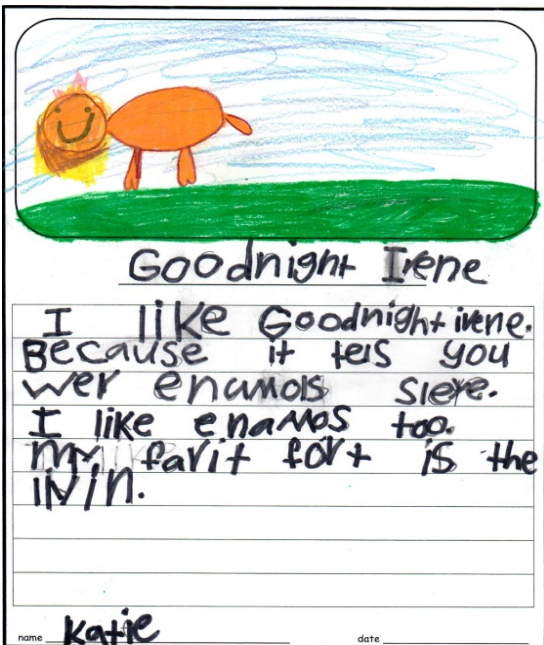 Goodnight Irene
I like Goodnight irene.
Because it tels you
wer enamols slepe.
I like enamos too.
my farit fort is the
liVin.
name Katie date